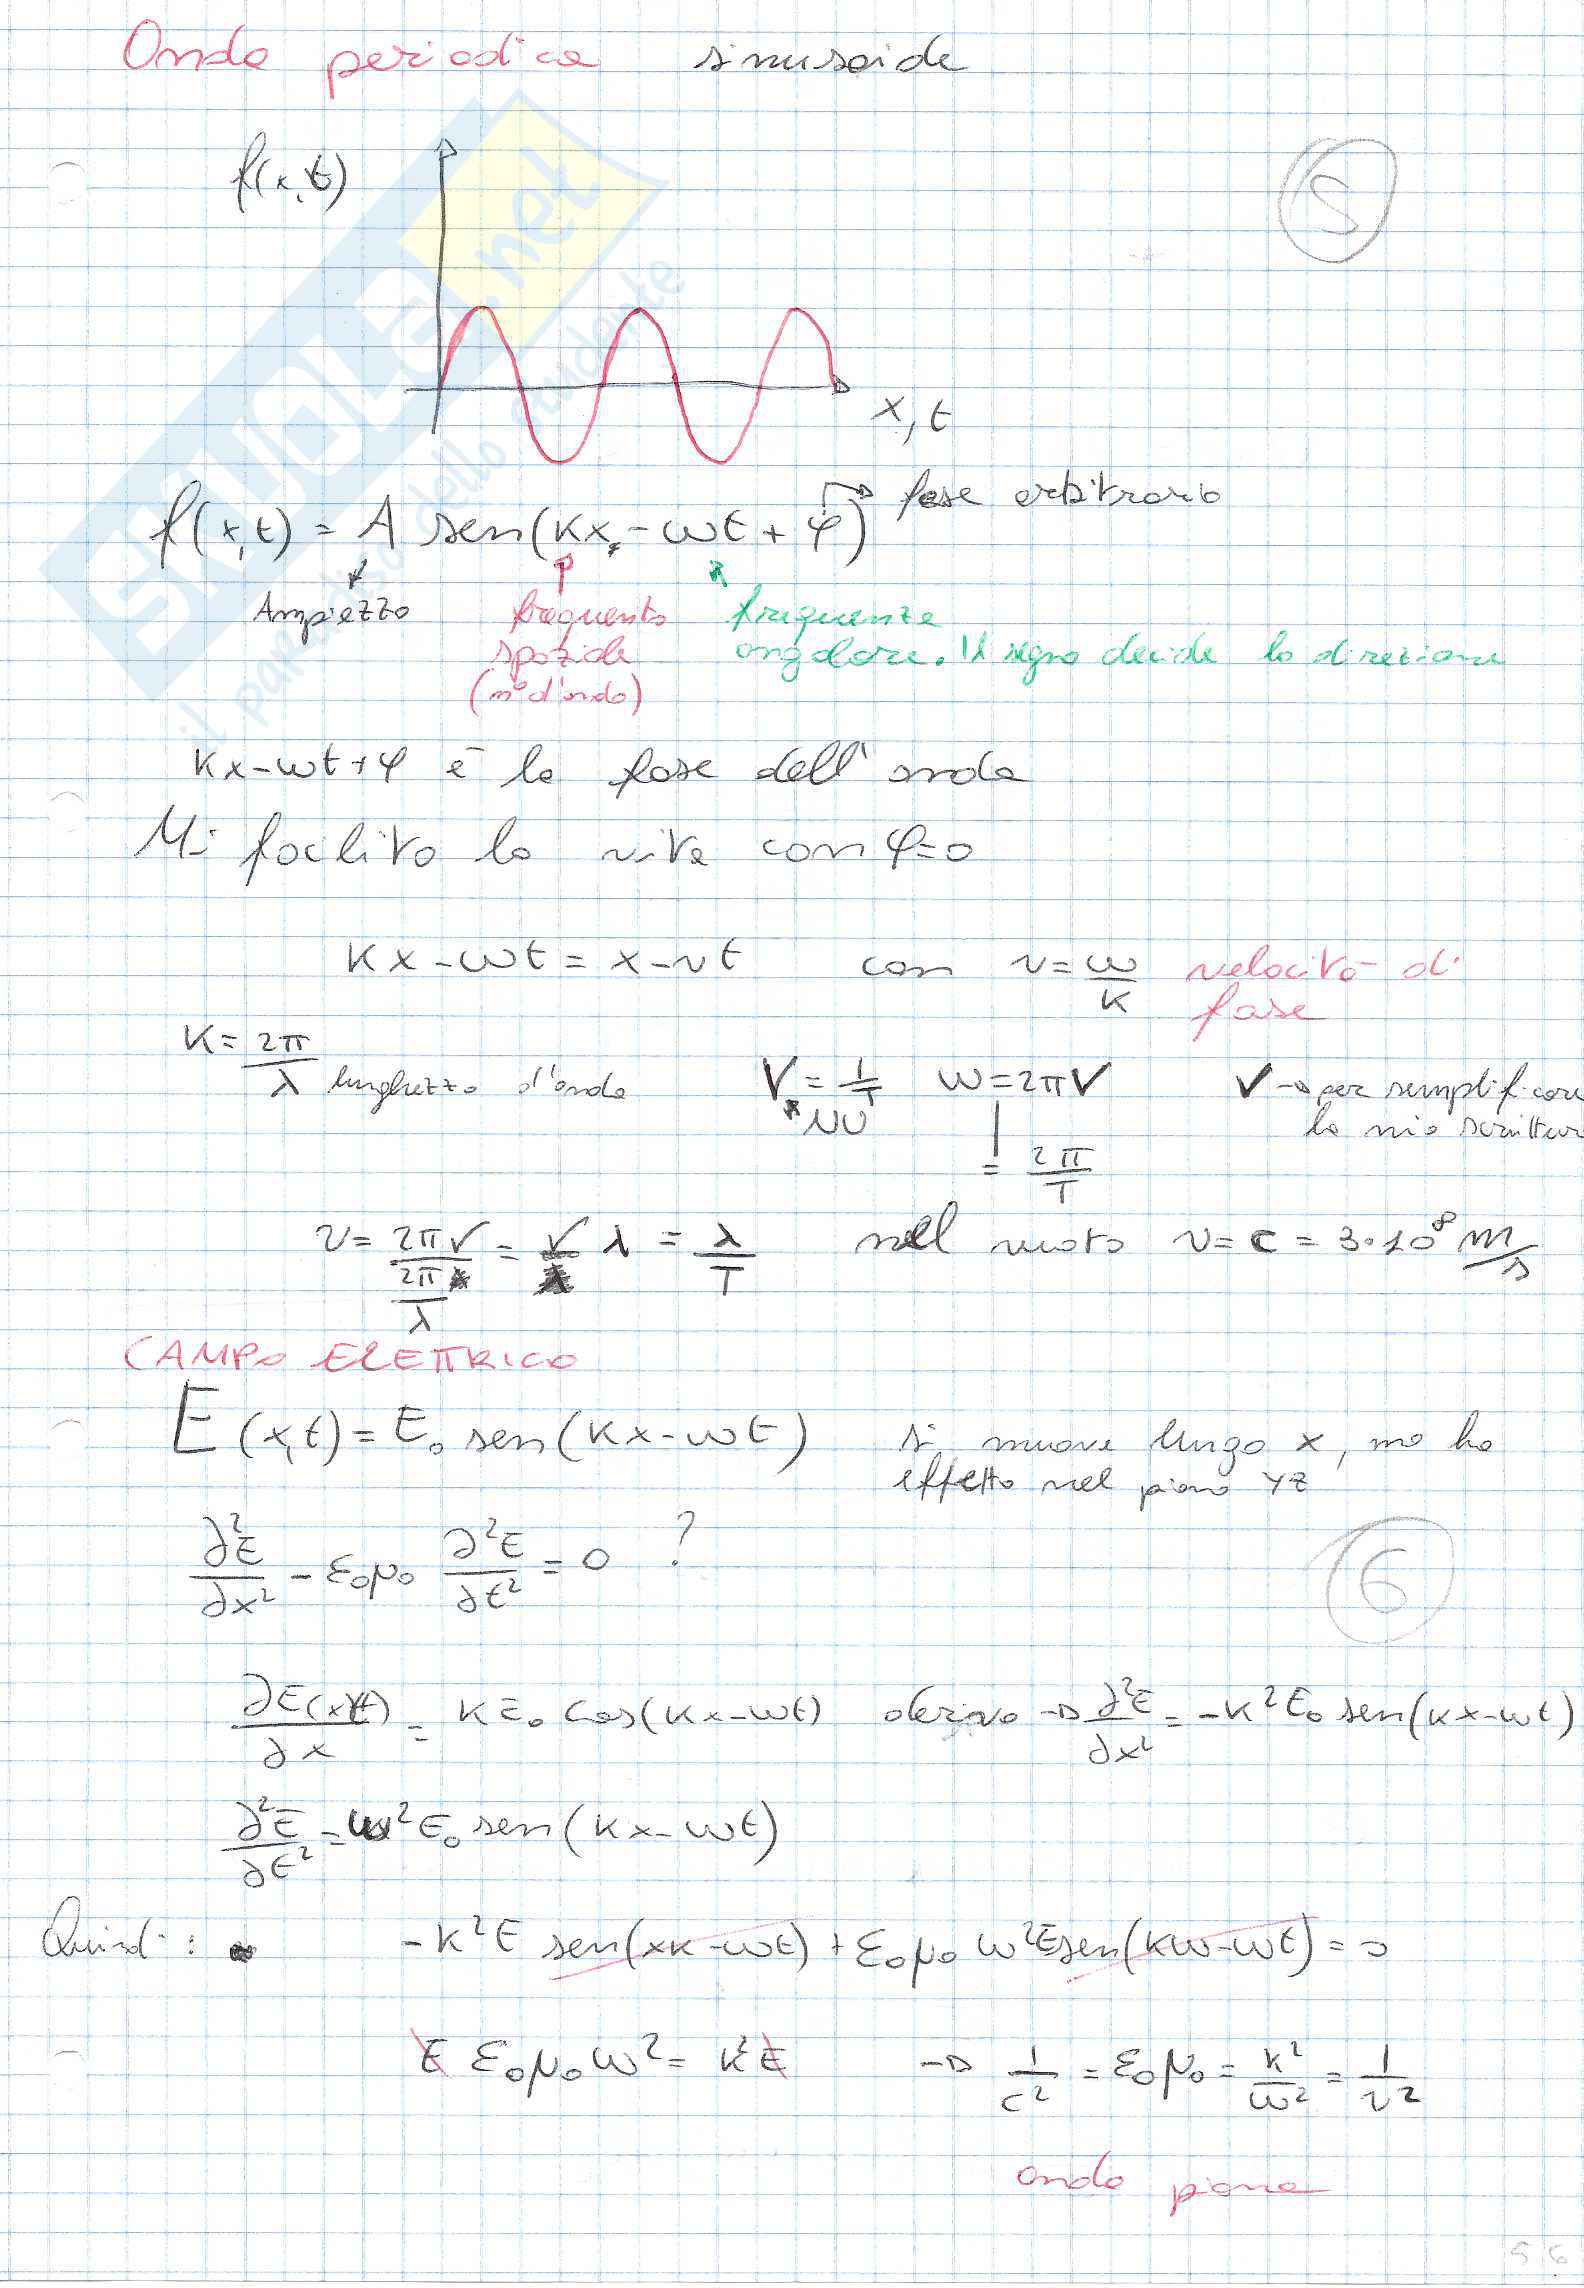 Onda periodica sinusoide
f(x,t)
5
x, t
f(x,t) = A sen(kx - ωt + φ) → fase arbitraria
Ampiezza
frequenza spaziale (n° d'onda)
frequenza angolare. Il segno decide la direzione
kx-ωt+φ è la fase dell'onda
Mi facilito la vita con φ=0
kx-ωt = x-vt con v = ω/k velocità di fase
k = 2π/λ lunghezza d'onda
ν = 1/T ω = 2πν
NU
= 2π/T
√ → per semplificare la mia scrittura
v = 2π√/(2π/λ) = √ λ = λ/T nel vuoto v = c = 3·10⁸ m/s
CAMPO ELETTRICO
E(x,t) = E₀ sen(kx-ωt) si muove lungo x, ma ha
effetto nel piano yz
∂²E/∂x² - ε₀μ₀ ∂²E/∂t² = 0 ?
6
∂E(x,t)/∂x = kE₀ cos(kx-ωt) derivo → ∂²E/∂x² = -k²E₀ sen(kx-ωt)
∂²E/∂t² = ω²E₀ sen(kx-ωt)
Quindi: -k²E sen(xk-ωt) + ε₀μ₀ ω²E sen(kω-ωt) = 0
E ε₀μ₀ω² = k²E → 1/c² = ε₀μ₀ = k²/ω² = 1/v²
onda piana
56
SKUOLA.net
il paradiso dello studente